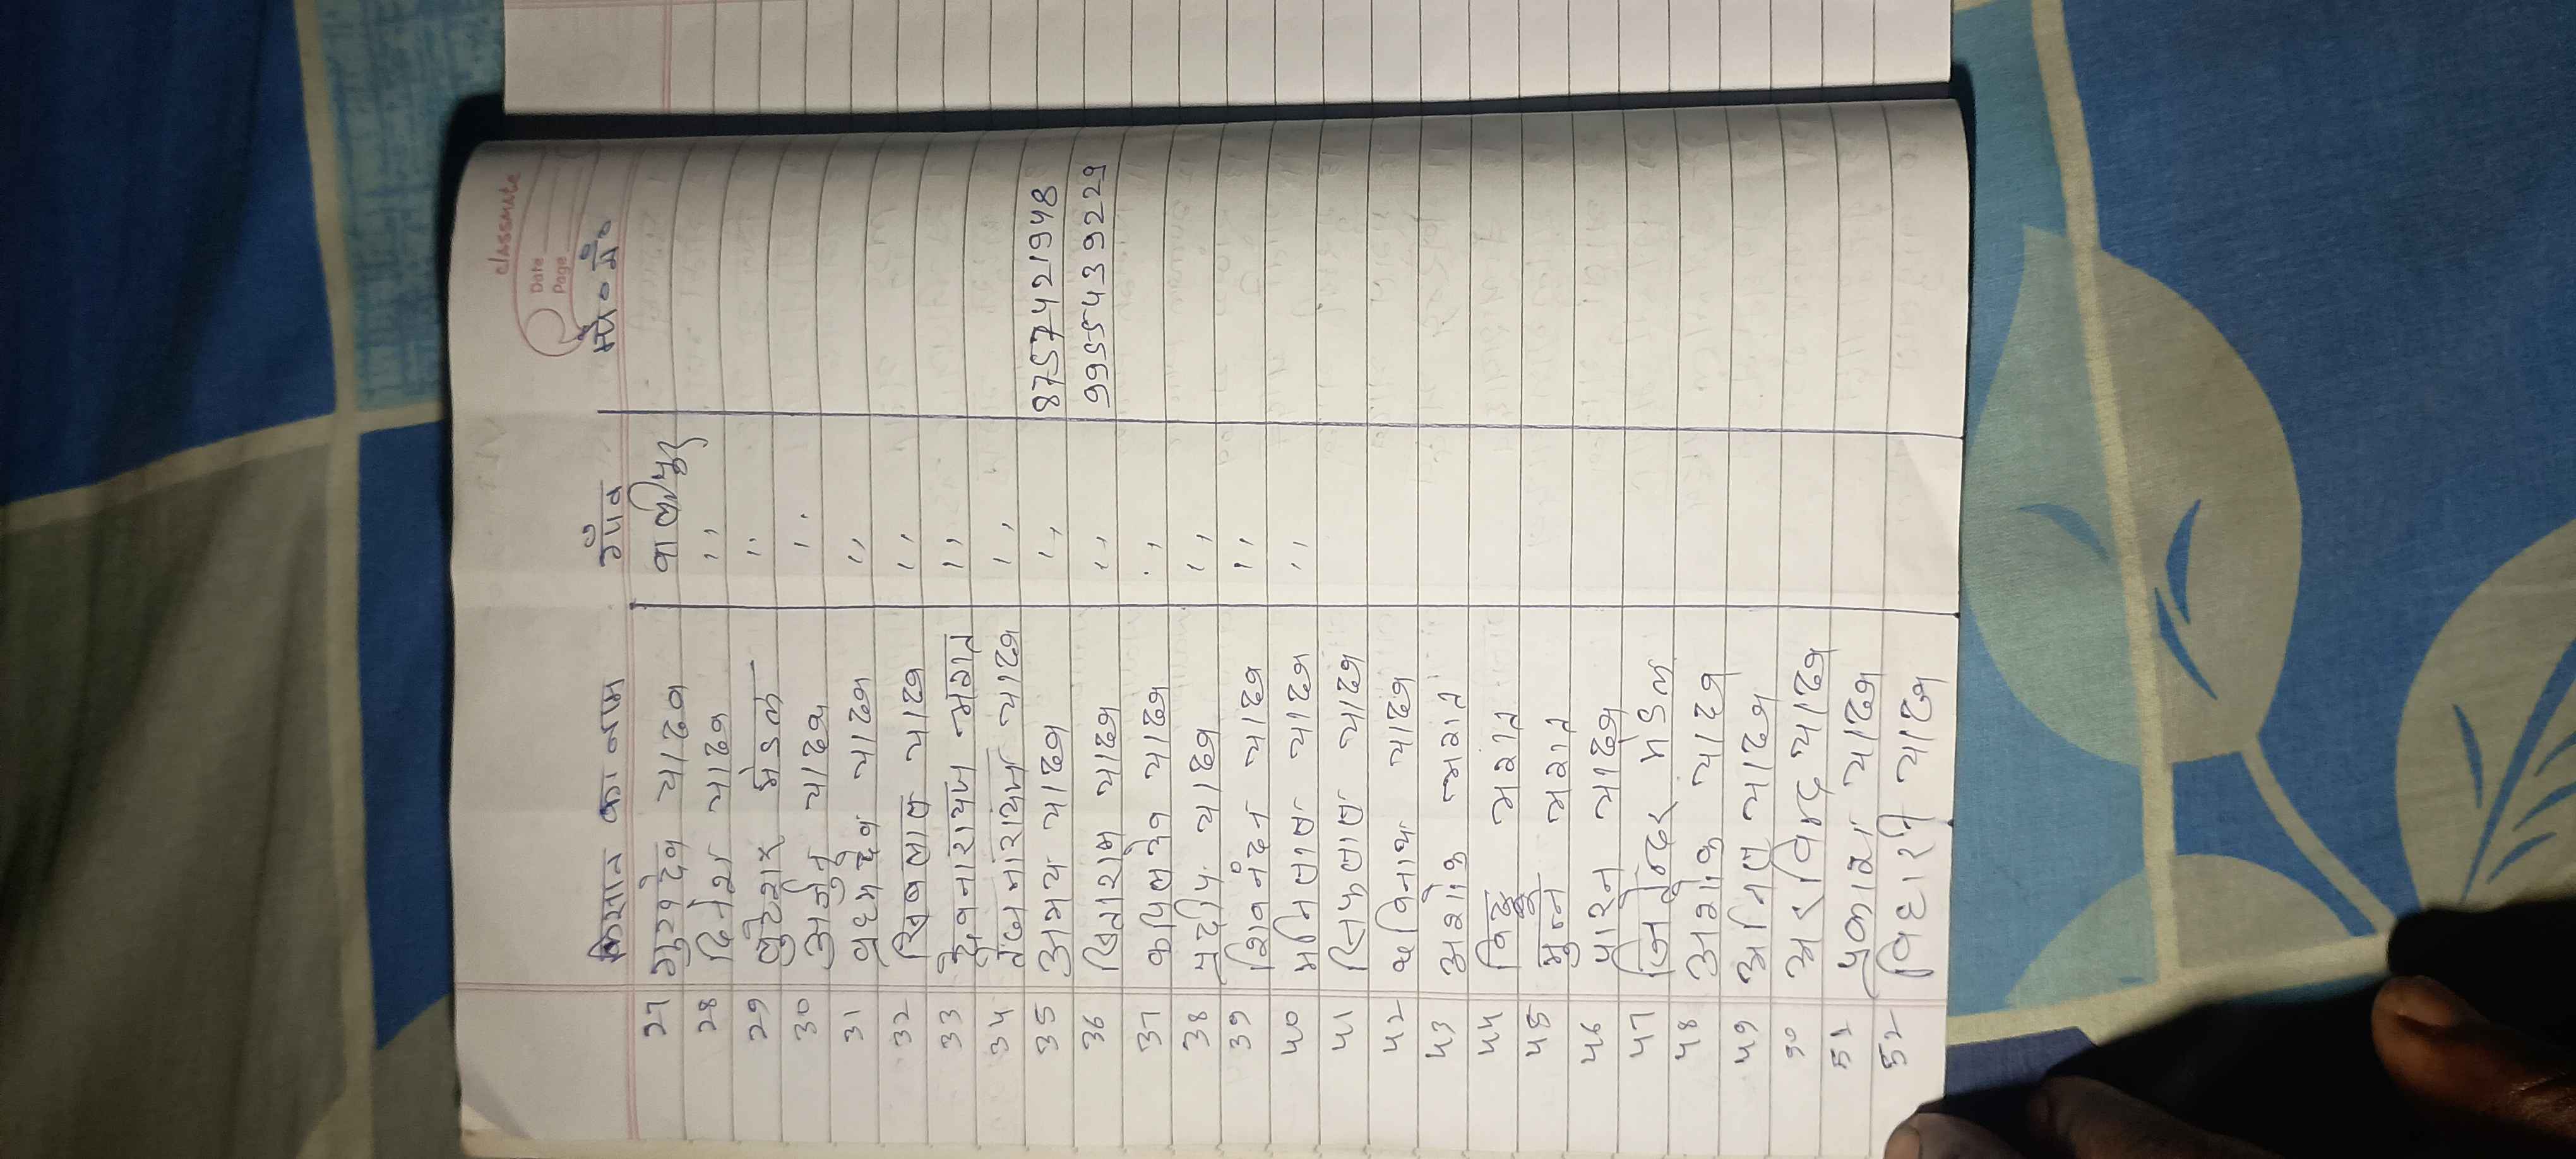 classmate
Date
Page
किसान का नाम गाँव मो० नं०
27 गुरुदेव यादव
28 दिनेश यादव ,,
29 मंडल ,,
30 अर्जुन यादव ,,
31 ब्रह्मदेव यादव ,,
32 यादव ,,
33 देवनारायण ,,
34 यादव ,,
35 अभय यादव ,, 8757421948
36 सिताराम यादव ,, 9955439229
37 कपिलदेव यादव ,,
38 प्रदीप यादव ,,
39 शिवनंदन यादव ,,
40 मनिलाल यादव ,,
41 यादव
42 अविनाश यादव
43 अशोक
44
45 मुन्ना
46 पारन यादव
47 जितेन्दर मंडल
48 अशोक यादव
49 अनिल यादव
50 अरविन्द यादव
51 प्रकाश यादव
52 विहारी यादव